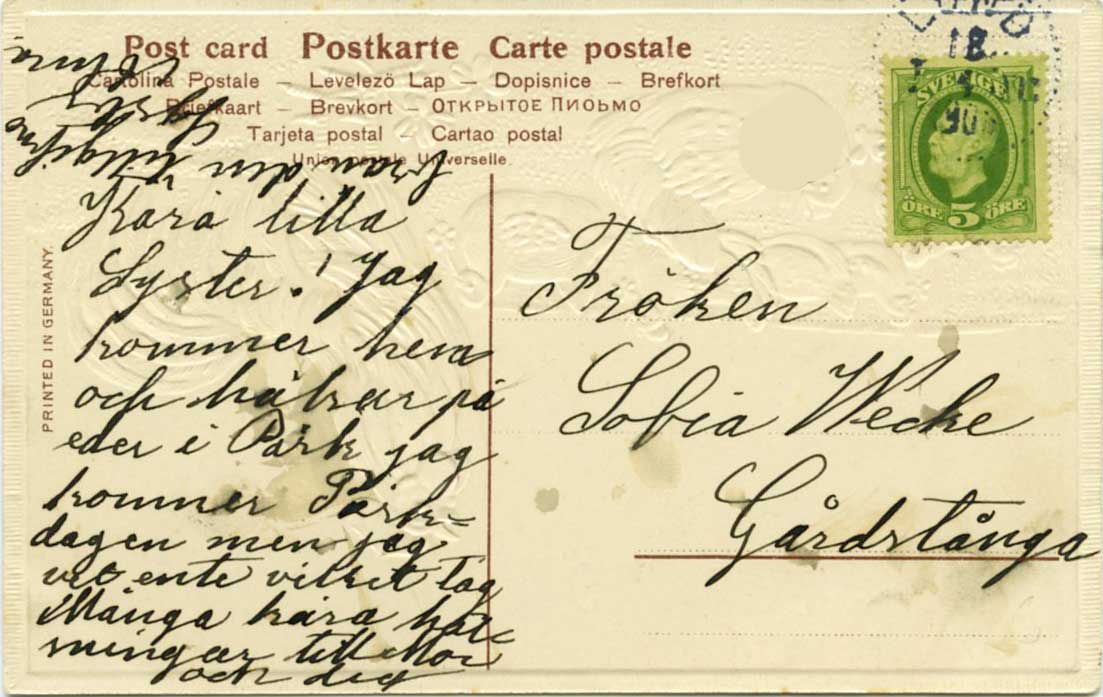 Post card Postkarte Carte postale
Cartolina Postale – Levelezö Lap – Dopisnice – Brefkort
Briefkaart – Brevkort – ОТКРЫТОЕ ПИСЬМО
Tarjeta postal – Cartao postal
Union postale Universelle
PRINTED IN GERMANY.
Kära lilla
Syster! Jag
kommer hem
och hälsar på
eder i Påsk jag
kommer Påsk-
dagen men jag
vet ente vilket tåg
Många kära häl-
sningar till Mor
och dig
från den
SVERIGE
ÖRE 5 ÖRE
Fröken
Sofia Wecke
Gårdstånga